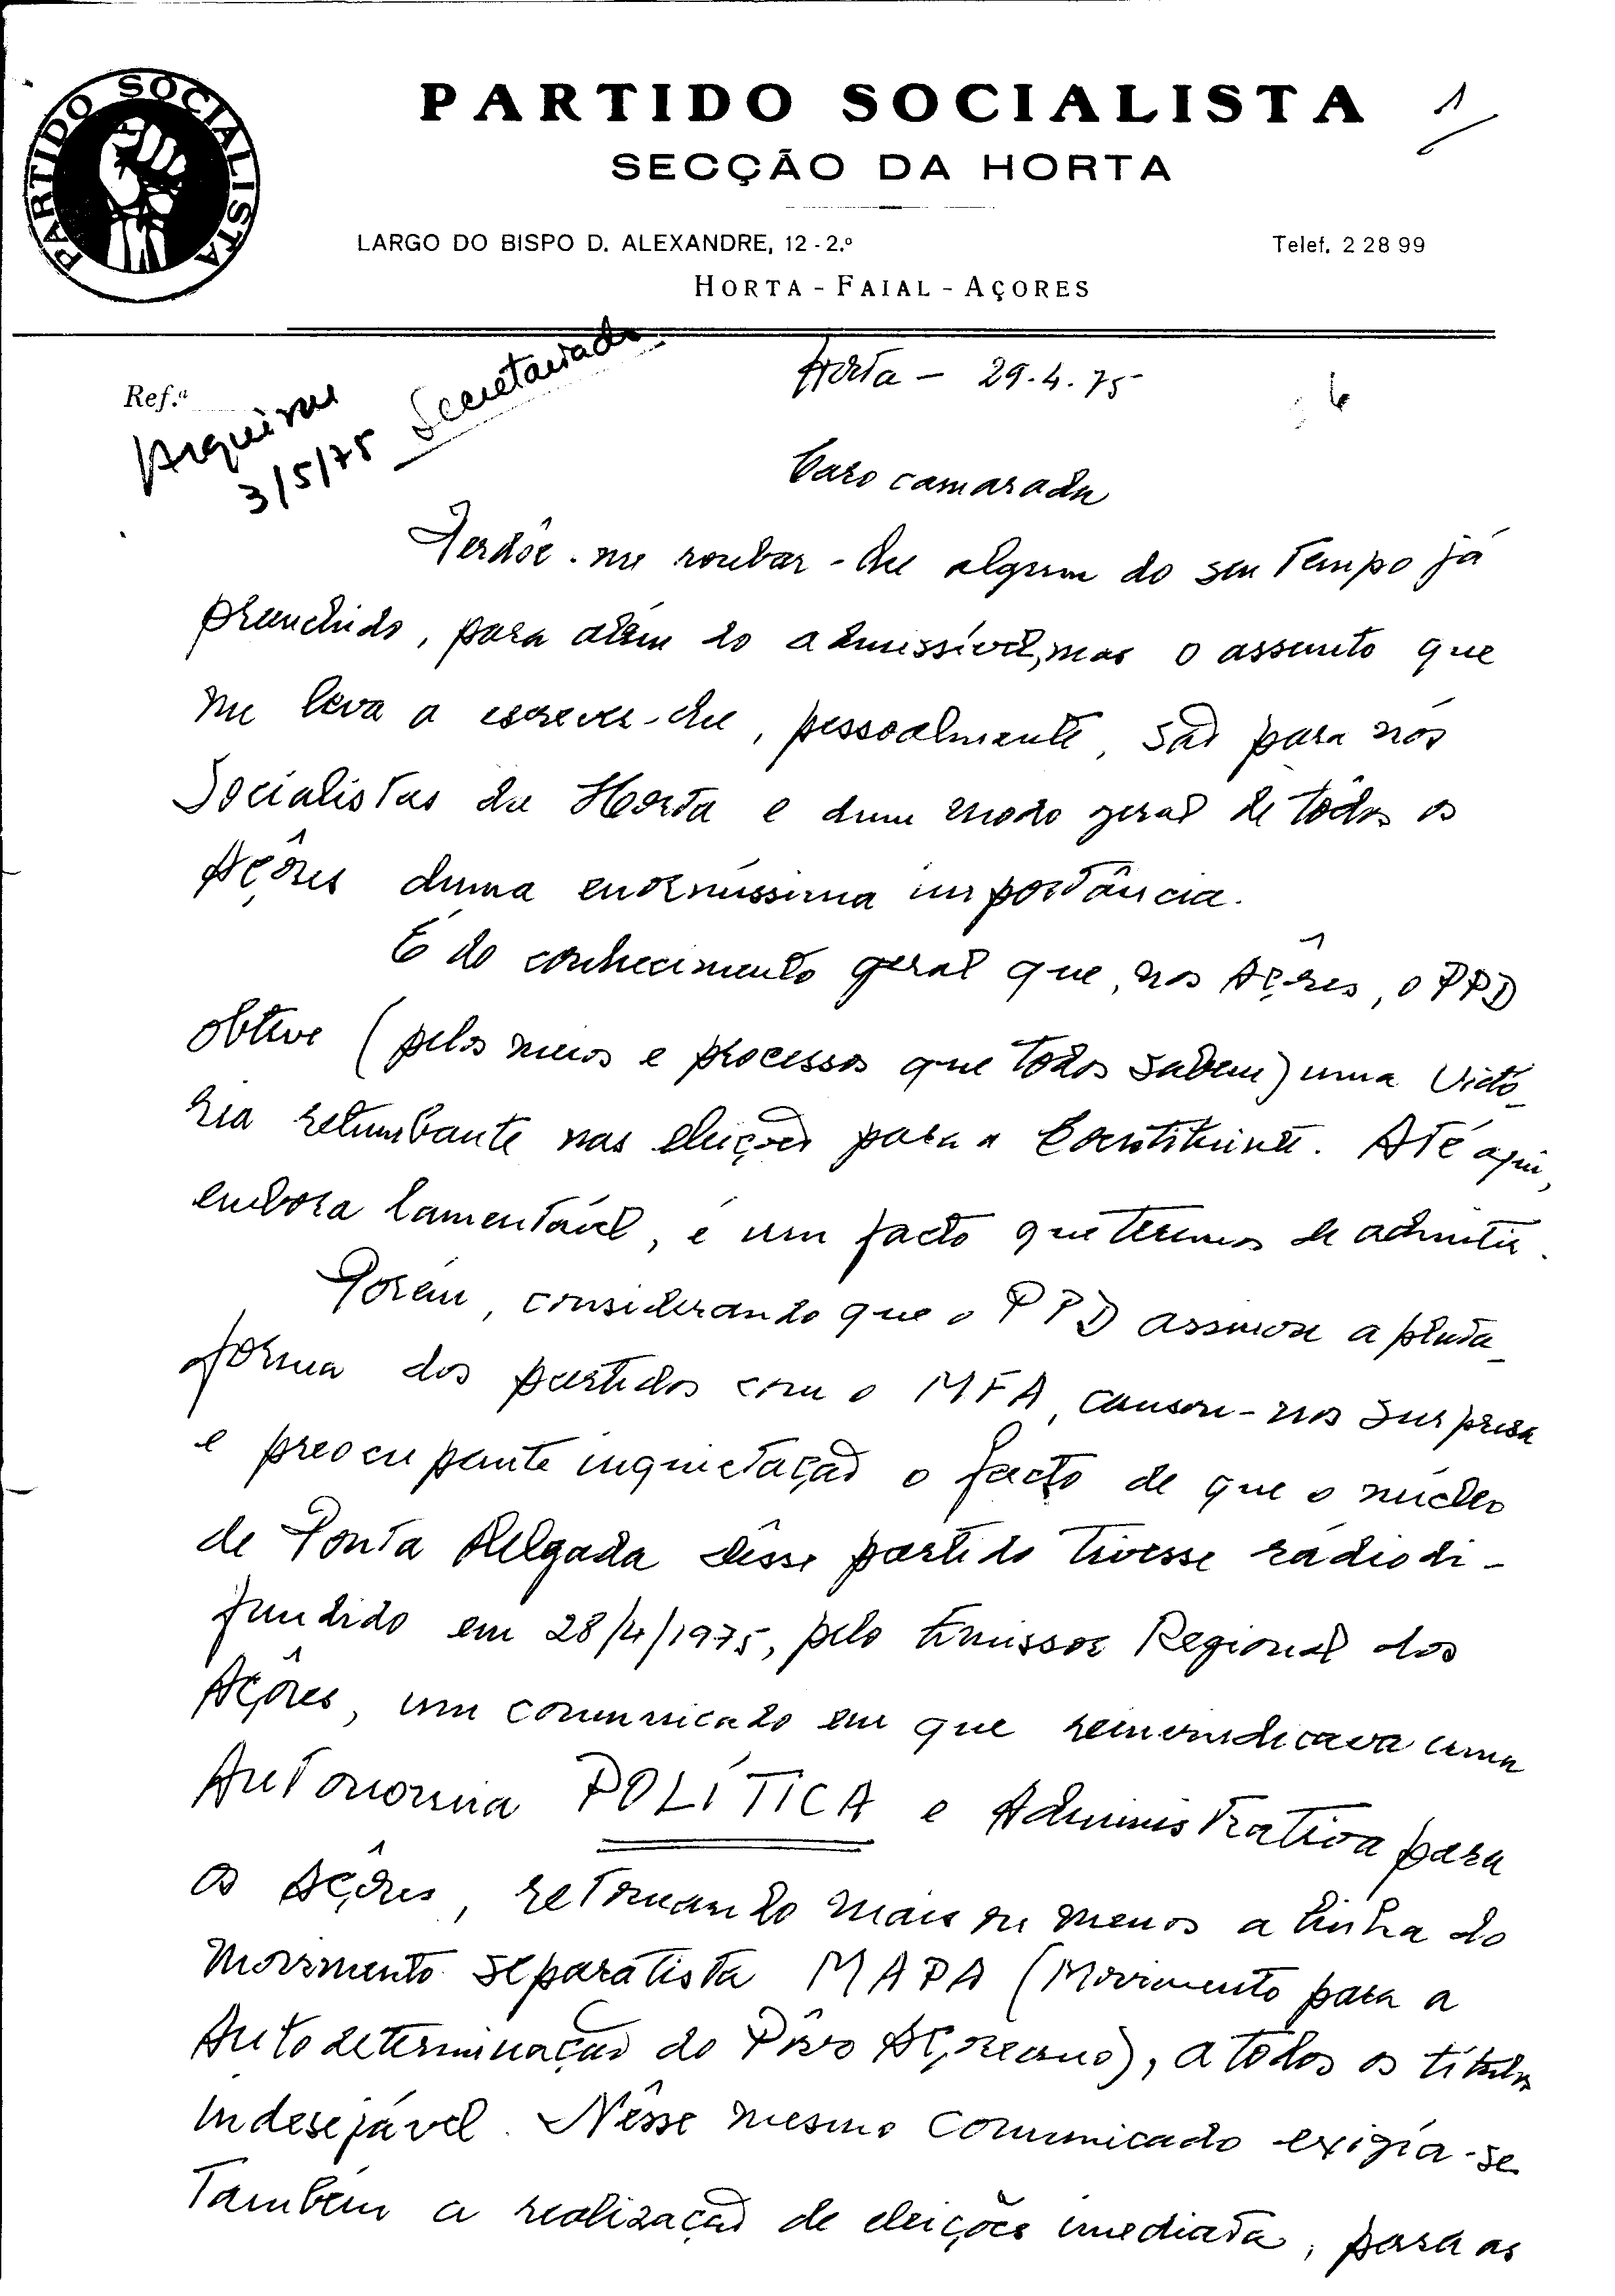 PARTIDO SOCIALISTA
PARTIDO SOCIALISTA
1/
SECÇÃO DA HORTA
LARGO DO BISPO D. ALEXANDRE, 12 - 2.º
Telef. 2 28 99
HORTA - FAIAL - AÇORES
Ref.ª
Arquivar
3/5/75 Secretariado
Horta - 29.4.75
Caro camarada
Perdôe-me roubar-lhe algum do seu tempo já
preenchido, para além do admissível, mas o assunto que
me leva a escrever-lhe, pessoalmente, são para nós
Socialistas da Horta e dum modo geral de todos os
Açôres duma enormíssima importância.
É do conhecimento geral que, nos Açôres, o PPD
obteve (pelos meios e processos que todos sabem) uma Victó-
ria retumbante nas eleições para a Constituinte. Até aqui,
embora lamentável, é um facto que teremos de admitir.
Porém, considerando que o PPD assinou a plata-
forma dos partidos com o MFA, causou-nos surpresa
e preocupante inquietação o facto de que o núcleo
de Ponta Delgada dêsse partido tivesse rádiodi-
fundido em 28/4/1975, pelo Emissor Regional dos
Açôres, um comunicado em que reinvindicava uma
Autonomia POLÍTICA e Administrativa para
os Açôres, retomando mais ou menos a linha do
movimento separatista MAPA (Movimento para a
Autodeterminação do Pôvo Açoreano), a todos os títulos
indesejável. Nêsse mesmo comunicado exigia-se
também a realização de eleições imediata, para as